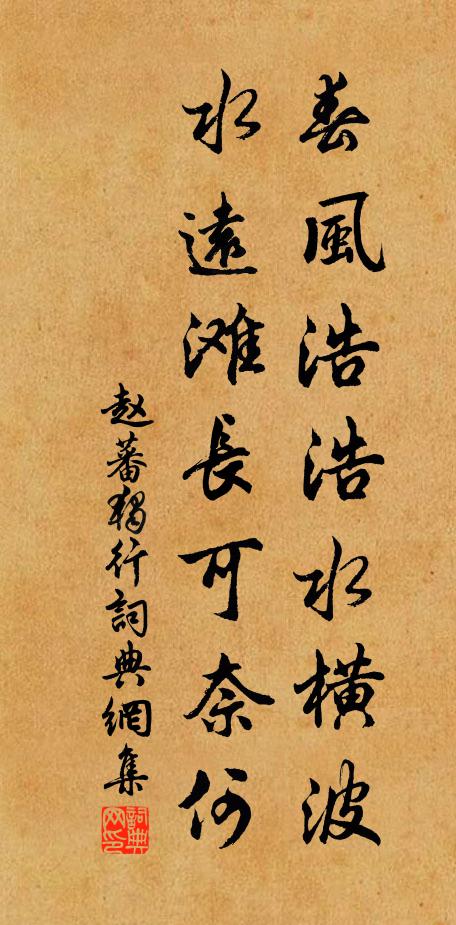 春風浩浩水橫波
水遠滩長可奈何
赵蕃獨行詞典網集
詞典网印